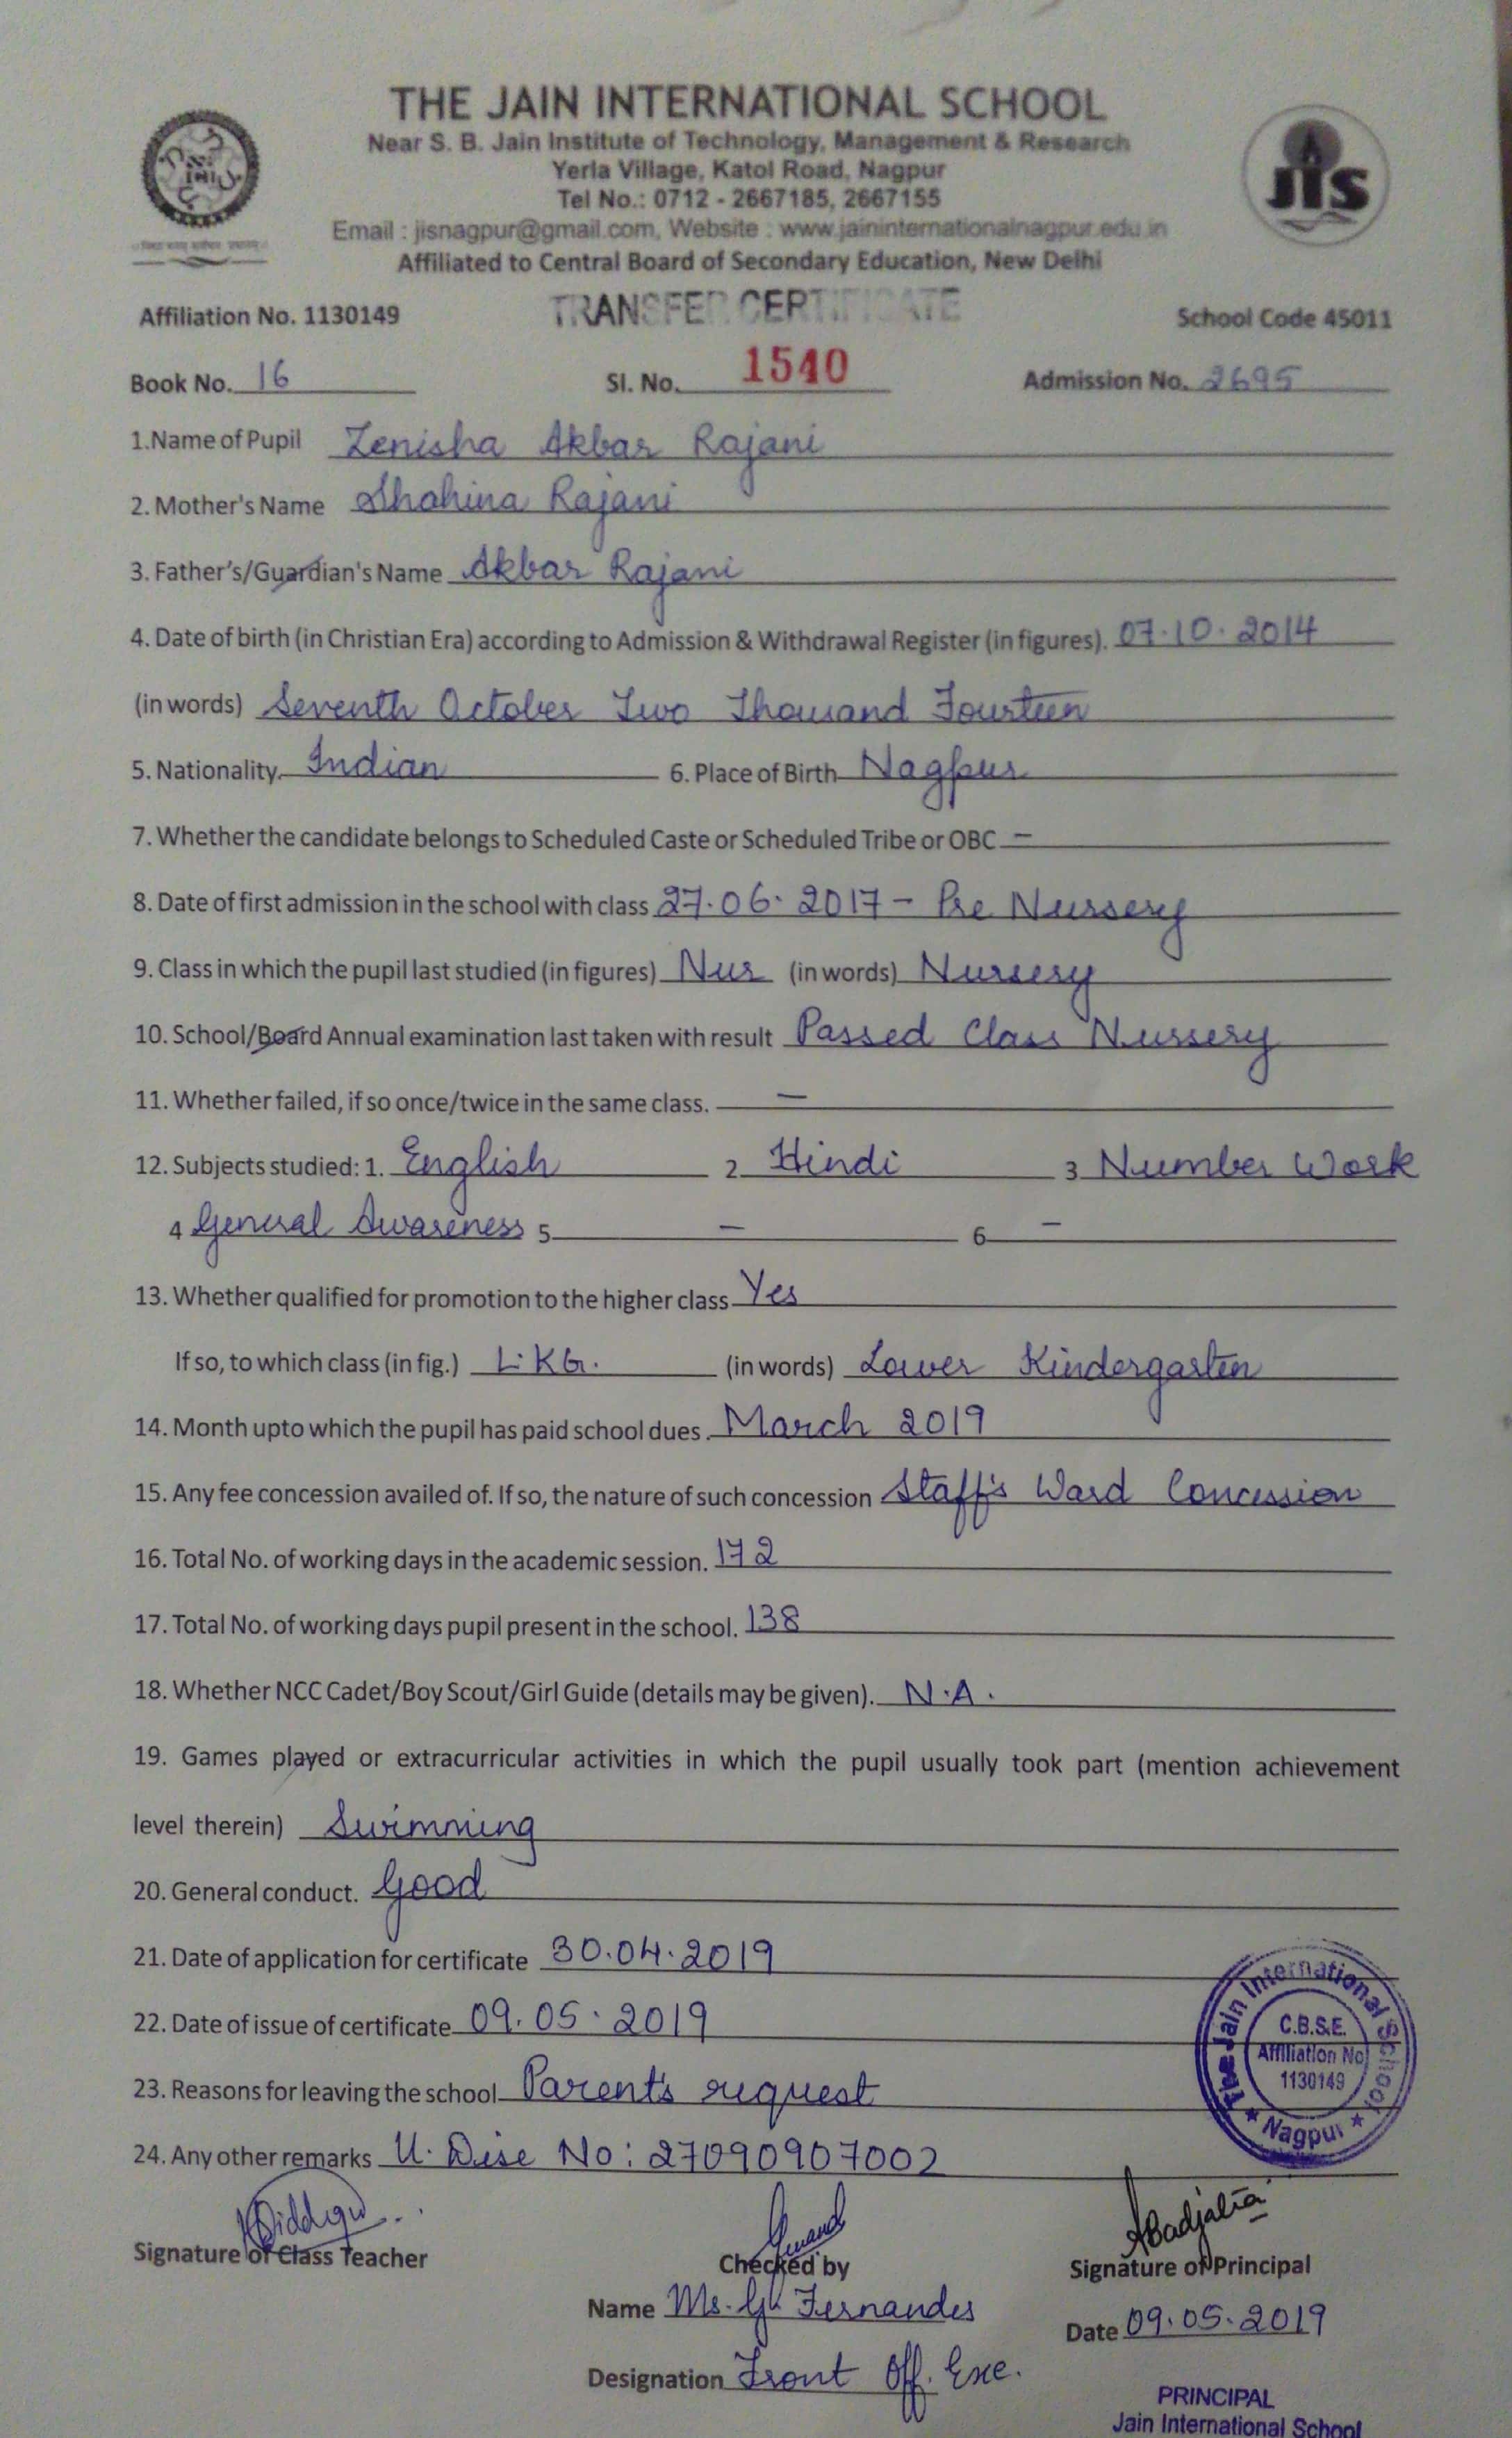 THE JAIN INTERNATIONAL SCHOOL
Near S. B. Jain Institute of Technology, Management & Research
Yerla Village, Katol Road, Nagpur
Tel No.: 0712 - 2667185, 2667155
Email : jisnagpur@gmail.com, Website : www.jaininternationalnagpur.edu.in
Affiliated to Central Board of Secondary Education, New Delhi
jis
Affiliation No. 1130149 TRANSFER CERTIFICATE School Code 45011
Book No. 16 Sl. No. 1540 Admission No. 2695
1.Name of Pupil Zenisha Akbar Rajani
2. Mother's Name Shahina Rajani
3. Father's/Guardian's Name Akbar Rajani
4. Date of birth (in Christian Era) according to Admission & Withdrawal Register (in figures). 07.10.2014
(in words) Seventh October Two Thousand Fourteen
5. Nationality. Indian 6. Place of Birth Nagpur
7. Whether the candidate belongs to Scheduled Caste or Scheduled Tribe or OBC –
8. Date of first admission in the school with class 27.06.2017 – Pre Nursery
9. Class in which the pupil last studied (in figures) Nur (in words) Nursery
10. School/Board Annual examination last taken with result Passed Class Nursery
11. Whether failed, if so once/twice in the same class. –
12. Subjects studied: 1. English 2 Hindi 3 Number Work
4 General Awareness 5 – 6 –
13. Whether qualified for promotion to the higher class Yes
If so, to which class (in fig.) L.KG. (in words) Lower Kindergarten
14. Month upto which the pupil has paid school dues. March 2019
15. Any fee concession availed of. If so, the nature of such concession Staff's Ward Concession
16. Total No. of working days in the academic session. 172
17. Total No. of working days pupil present in the school. 138
18. Whether NCC Cadet/Boy Scout/Girl Guide (details may be given). N.A.
19. Games played or extracurricular activities in which the pupil usually took part (mention achievement
level therein) Swimming
20. General conduct. Good
21. Date of application for certificate 30.04.2019
22. Date of issue of certificate 09.05.2019
23. Reasons for leaving the school Parent's request
24. Any other remarks U. Dise No: 27090907002
The Jain International School
C.B.S.E.
Affiliation No
1130149
★ Nagpur ★
Signature of Class Teacher Checked by Signature of Principal
Name Ms. G. Fernandes Date 09.05.2019
Designation Front Off. Exe.
PRINCIPAL
Jain International School